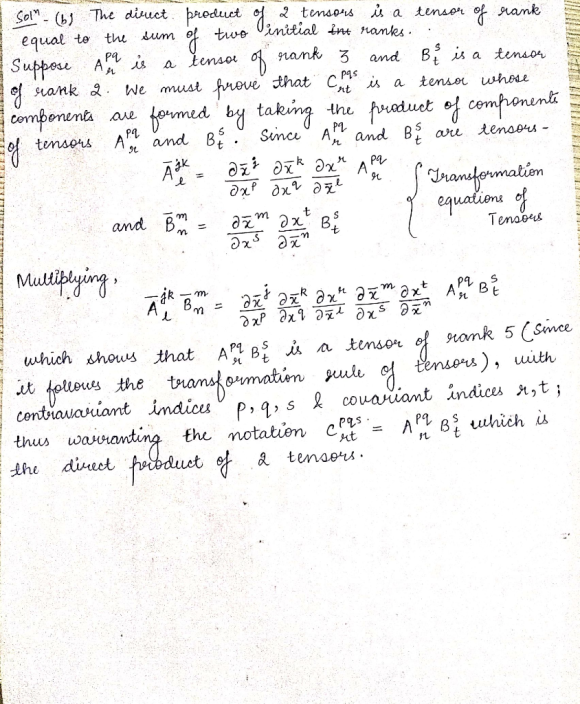 Solⁿ - (b) The direct product of 2 tensors is a tensor of rank
equal to the sum of two initial ranks.
Suppose A^{pq}_r is a tensor of rank 3 and B^s_t is a tensor
of rank 2. We must prove that C^{pqs}_{rt} is a tensor whose
components are formed by taking the product of components
of tensors A^{pq}_r and B^s_t. Since A^{pq}_r and B^s_t are tensors -
Ā^{jk}_l = ∂x̄^j/∂x^p ∂x̄^k/∂x^q ∂x^r/∂x̄^l A^{pq}_r
and B̄^m_n = ∂x̄^m/∂x^s ∂x^t/∂x̄^n B^s_t
{ Transformation
equations of
Tensors
Multiplying,
Ā^{jk}_l B̄^m_n = ∂x̄^j/∂x^p ∂x̄^k/∂x^q ∂x^r/∂x̄^l ∂x̄^m/∂x^s ∂x^t/∂x̄^n A^{pq}_r B^s_t
which shows that A^{pq}_r B^s_t is a tensor of rank 5 (Since
it follows the transformation rule of tensors), with
contravariant indices p, q, s & covariant indices r, t;
thus warranting the notation C^{pqs}_{rt} = A^{pq}_r B^s_t which is
the direct product of 2 tensors.